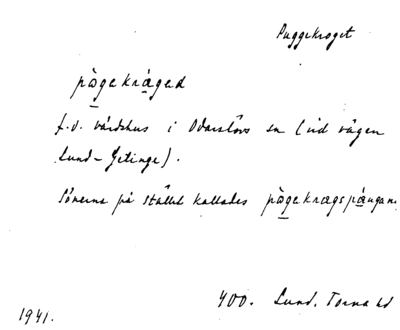 Puggekroget
pògekråged
f.d. värdshus i Odarslövs sn (vid vägen
Lund-Getinge).
Sönerna på stället kallades pògekrægspångana
400. Lund. Torna hd
1941.